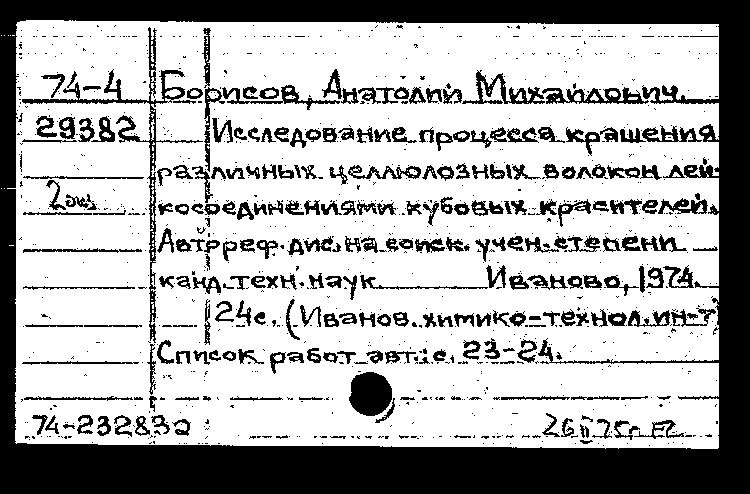 74-4 Борисов, Анатолий Михайлович.
29382 Исследование процесса крашения
различных целлюлозных волокон лей-
2 экз косоединениями кубовых красителей.
Автореф. дис. на соиск. учен. степени
канд. техн. наук. Иваново, 1974.
24с. (Иванов. химико-технол. ин-т)
Список работ авт.: с. 23-24.
74-23283а 26 II 75г.